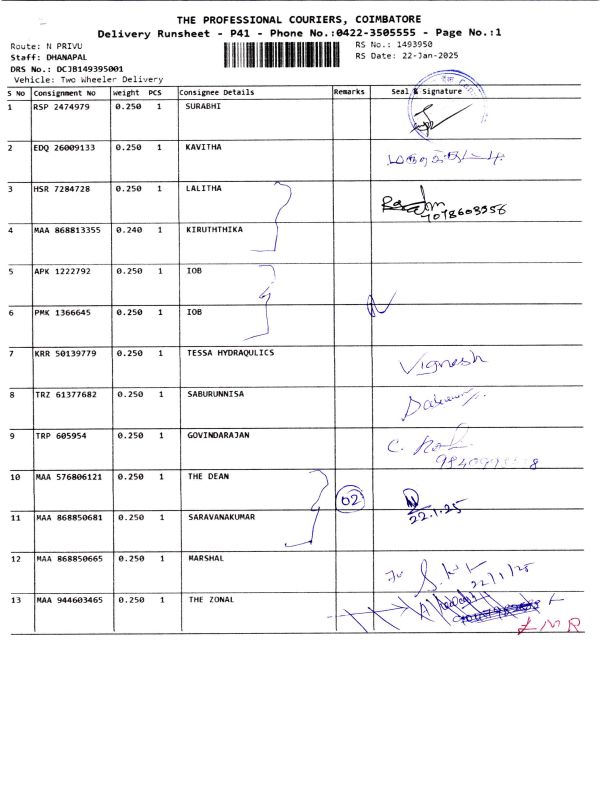 THE PROFESSIONAL COURIERS, COIMBATORE
Delivery Runsheet - P41 - Phone No.:0422-3505555 - Page No.:1
Route: N PRIVU
RS No.: 1493950
Staff: DHANAPAL
RS Date: 22-Jan-2025
DRS No.: DCJB149395001
Vehicle: Two Wheeler Delivery
S No Consignment No weight PCS Consignee Details Remarks Seal & Signature
1 RSP 2474979 0.250 1 SURABHI
2 EDQ 26009133 0.250 1 KAVITHA
3 HSR 7284728 0.250 1 LALITHA
7078603556
4 MAA 868813355 0.240 1 KIRUTHTHIKA
5 APK 1222792 0.250 1 IOB
6 PMK 1366645 0.250 1 IOB
7 KRR 50139779 0.250 1 TESSA HYDRAQULICS Vignesh
8 TRZ 61377682 0.250 1 SABURUNNISA
9 TRP 605954 0.250 1 GOVINDARAJAN
10 MAA 576806121 0.250 1 THE DEAN 02
22.1.25
11 MAA 868850681 0.250 1 SARAVANAKUMAR
12 MAA 868850665 0.250 1 MARSHAL
22/1/25
13 MAA 944603465 0.250 1 THE ZONAL